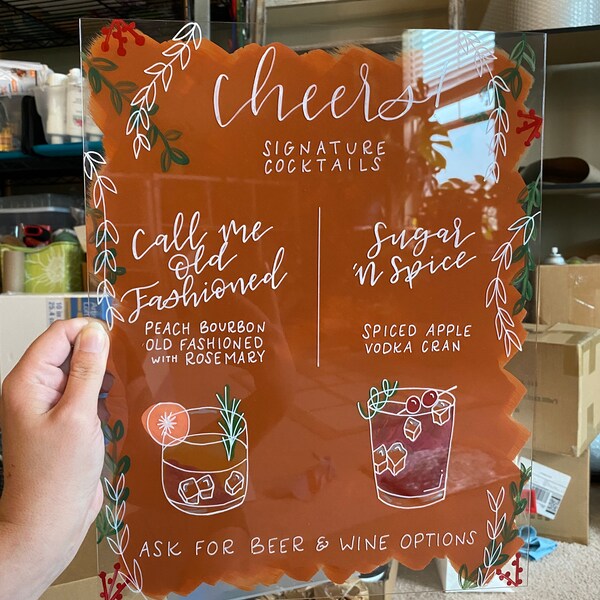 Cheers!
SIGNATURE
COCKTAILS
Call me
Old
Fashioned
PEACH BOURBON
OLD FASHIONED
WITH ROSEMARY
Sugar
'N Spice
SPICED APPLE
VODKA CRAN
ASK FOR BEER & WINE OPTIONS